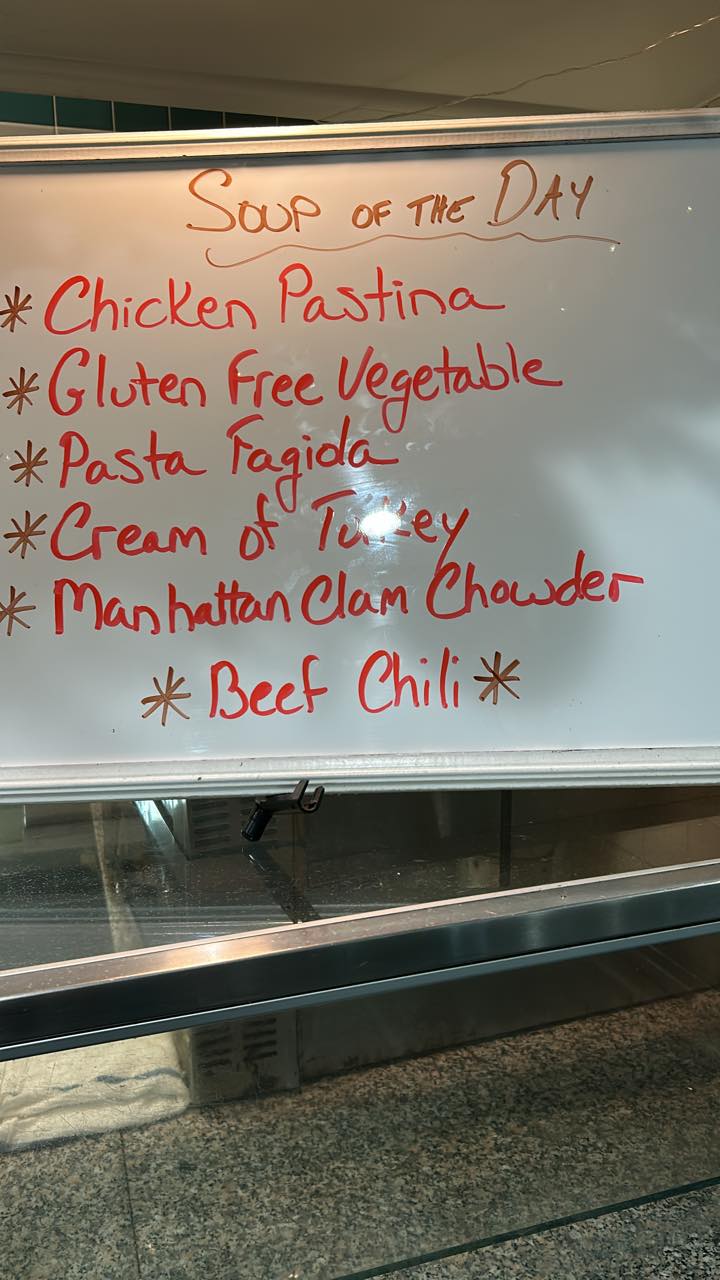 Soup of the Day
* Chicken Pastina
* Gluten Free Vegetable
* Pasta Fagiola
* Cream of Turkey
* Manhattan Clam Chowder
* Beef Chili *